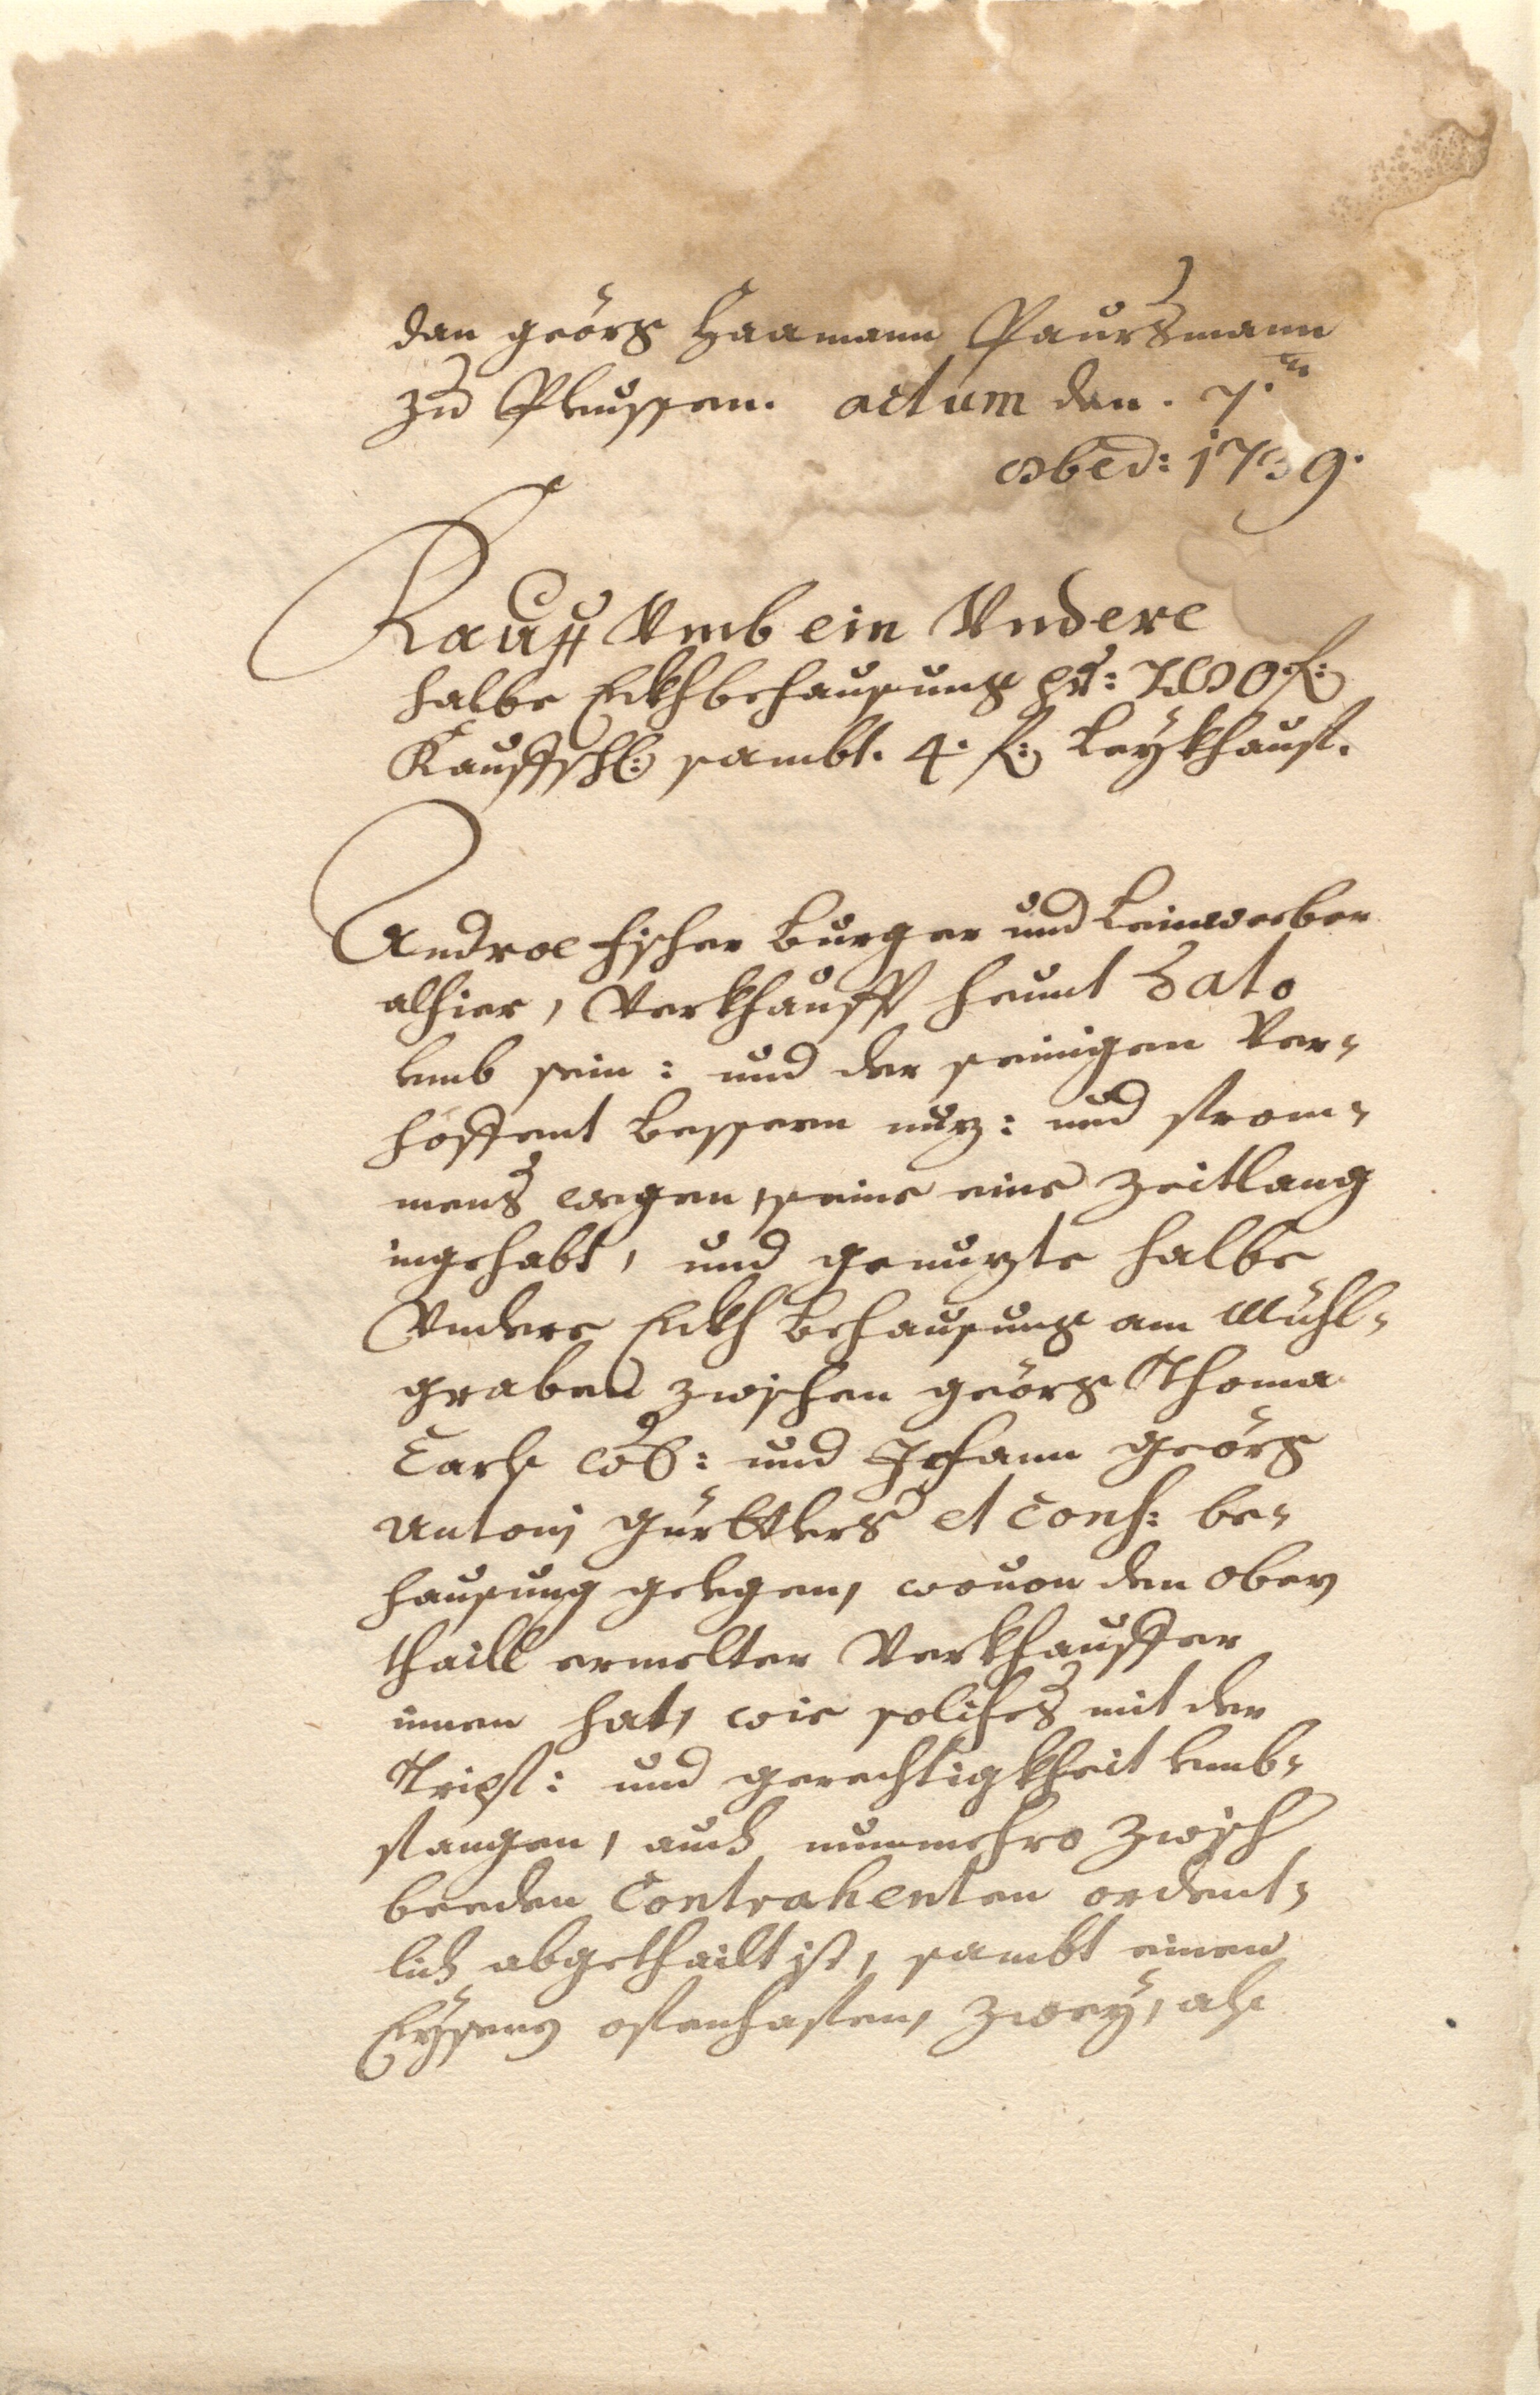 dan geörg Haamann Paursmann
zu Pleussen. actum den. 7.ten
8bed: 1739.
Kauff Vmb ein Vndere
halbe Eckhbehausung pr: 700 f:
Kauffsch: sambt. 4. f: Leykhauf.
Andree Fischer Burger und Leinweber
alhier, Verkhaufft heunt Dato
vmb sein: und der seinigen Ver-
hoffent bessern nuz: und from-
mens wegen, seine eine Zeitlang
ingehabt, und genuzte halbe
Vndere Eckh Behausung am Mühl-
graben zwischen geörg Thoma
und Johann Geörg
Antonj Gürttlers et Cons: be-
hausung gelegen, wouon den obern
thaill ermelter Verkhauffer
innen hat, wie solches mit der
Tripf: und gerechtigkheit vmb-
fangen, auch nunmehro Zwisch
beeden Contrahenten ordent-
lich abgetheilt ist, sambt einen
Eysern ofenhafen, zwey, als